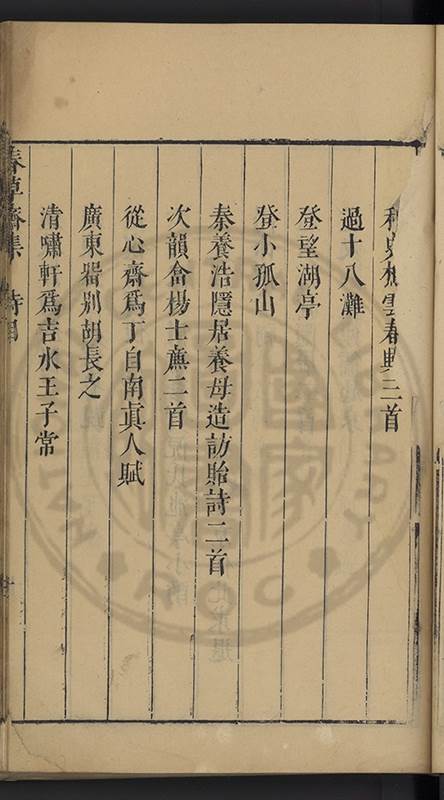 和吳巢雲春興三首
過十八灘
登望湖亭
登小孤山
秦養浩隱居養母造訪貽詩二首
次韻會楊士廉二首
從心齋爲丁自南眞人賦
廣東畱別胡長之
清嘯軒爲吉水王子常
春草齋集 詩目